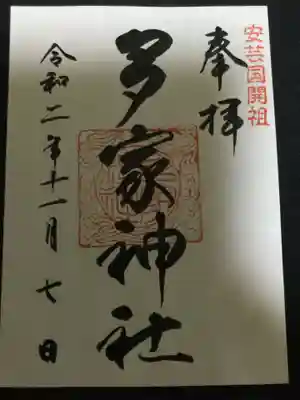 安芸国開祖
奉拝
多家神社
令和二年十一月七日